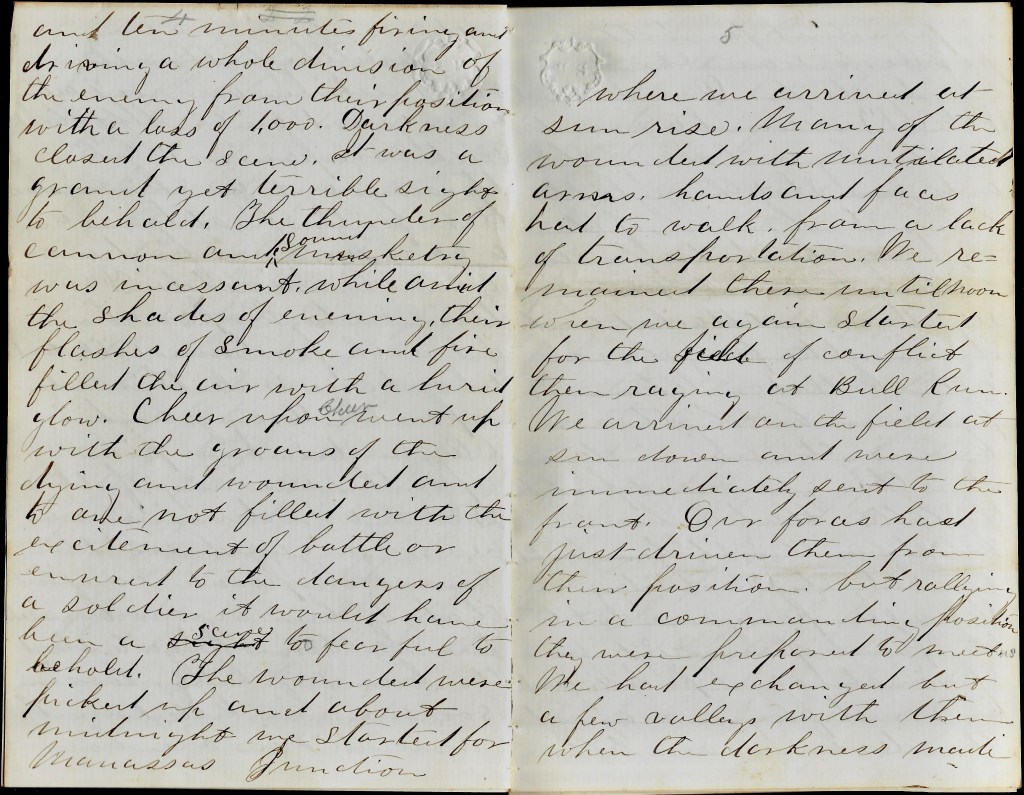 4
and ten minutes firing and
driving a whole division of
the enemy from their position
with a loss of 1,000. Darkness
closed the scene. It was a
grand yet terrible sight
to behold. The thunder of
cannon and sound musketry
was incessant, while amid
the shades of evening, their
flashes of smoke and fire
filled the air with a lurid
glow. Cheer upon Cheer went up
with the groans of the
dying and wounded and
to one not filled with the
excitement of battle or
enured to the dangers of
a soldier it would have
been a sight scene to fearful to
behold. The wounded were
picked up and about
midnight we started for
Manassas Junction
5
where we arrived at
sun rise. Many of the
wounded with mutilated
arms, hands and faces
had to walk, from a lack
of transportation. We re=
mained there until noon
when we again started
for the field of conflict
then raging at Bull Run.
We arrived on the field at
sun down and were
immediately sent to the
front. Our forces had
just driven them from
their position. but rallying
in a commanding position
they were prepared to meet us
We had exchanged but
a few valleys with them
when the darkness made